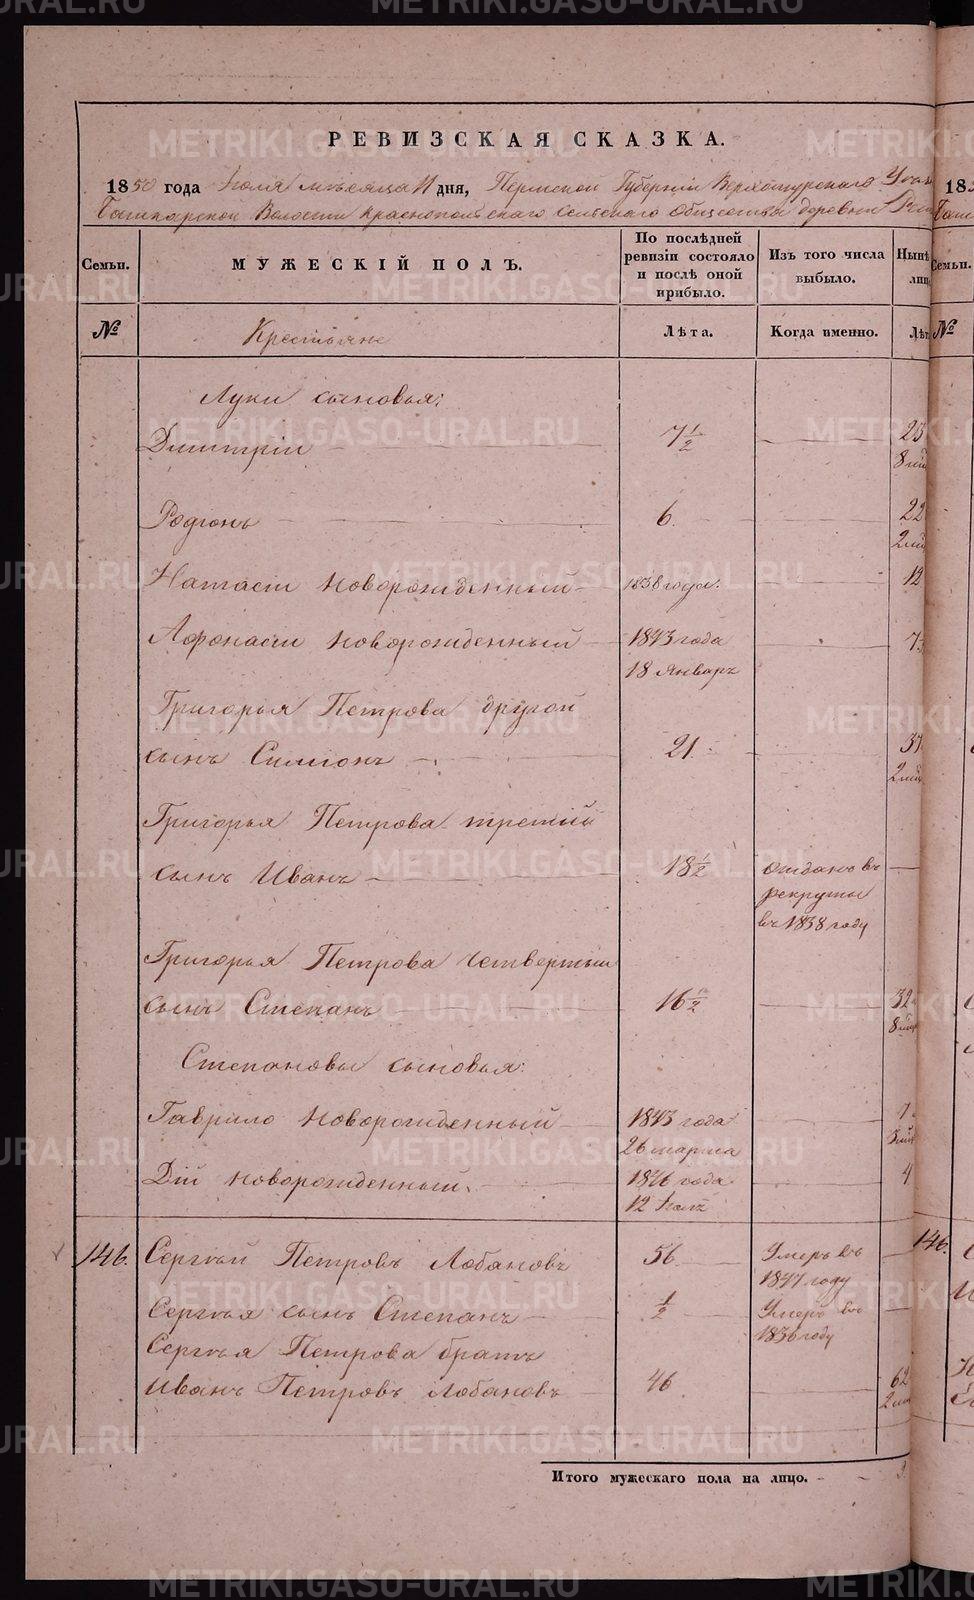 РЕВИЗСКАЯ СКАЗКА.
1850 года Іюля мѣсяца 11 дня, Пермской Губерніи Верхотурского
Башкарской Волости Краснопольскаго Сельскаго Общества деревни
Семьи. МУЖЕСКІЙ ПОЛЪ. По послѣдней ревизіи состояло и послѣ оной прибыло. Изъ того числа выбыло. Нынѣ
№ Крестьяне Лѣта. Когда именно.
Луки сыновья:
Дмитрій 7 1/2 23
Родіонъ 6. 22
Новорожденный 1838 года. 12
Афонасій новорожденный 1843 года 7
18 Январ
Григорья Петрова другой
сынъ Симіонъ 21. 37
Григорья Петрова третій
сынъ Иванъ 18 1/2 отданъ въ
рекруты
въ 1838 году
Григорья Петрова четвертый
сынъ Степанъ 16 1/2 32
Степановы сыновья:
Гаврило новорожденный 1843 года 7
26 марта
Дій новорожденный. 1846 года 4
12
146. Сергѣй Петровъ Лобановъ 56. Умеръ въ
1847 году
Сергѣя сынъ Степанъ 1/2 Умеръ въ
1836 году
Сергѣя Петрова братъ
Иванъ Петровъ Лобановъ 46 62
Итого мужескаго пола на лицо.
183
Семьи.
№
146.
METRIKI.GASO-URAL.RU